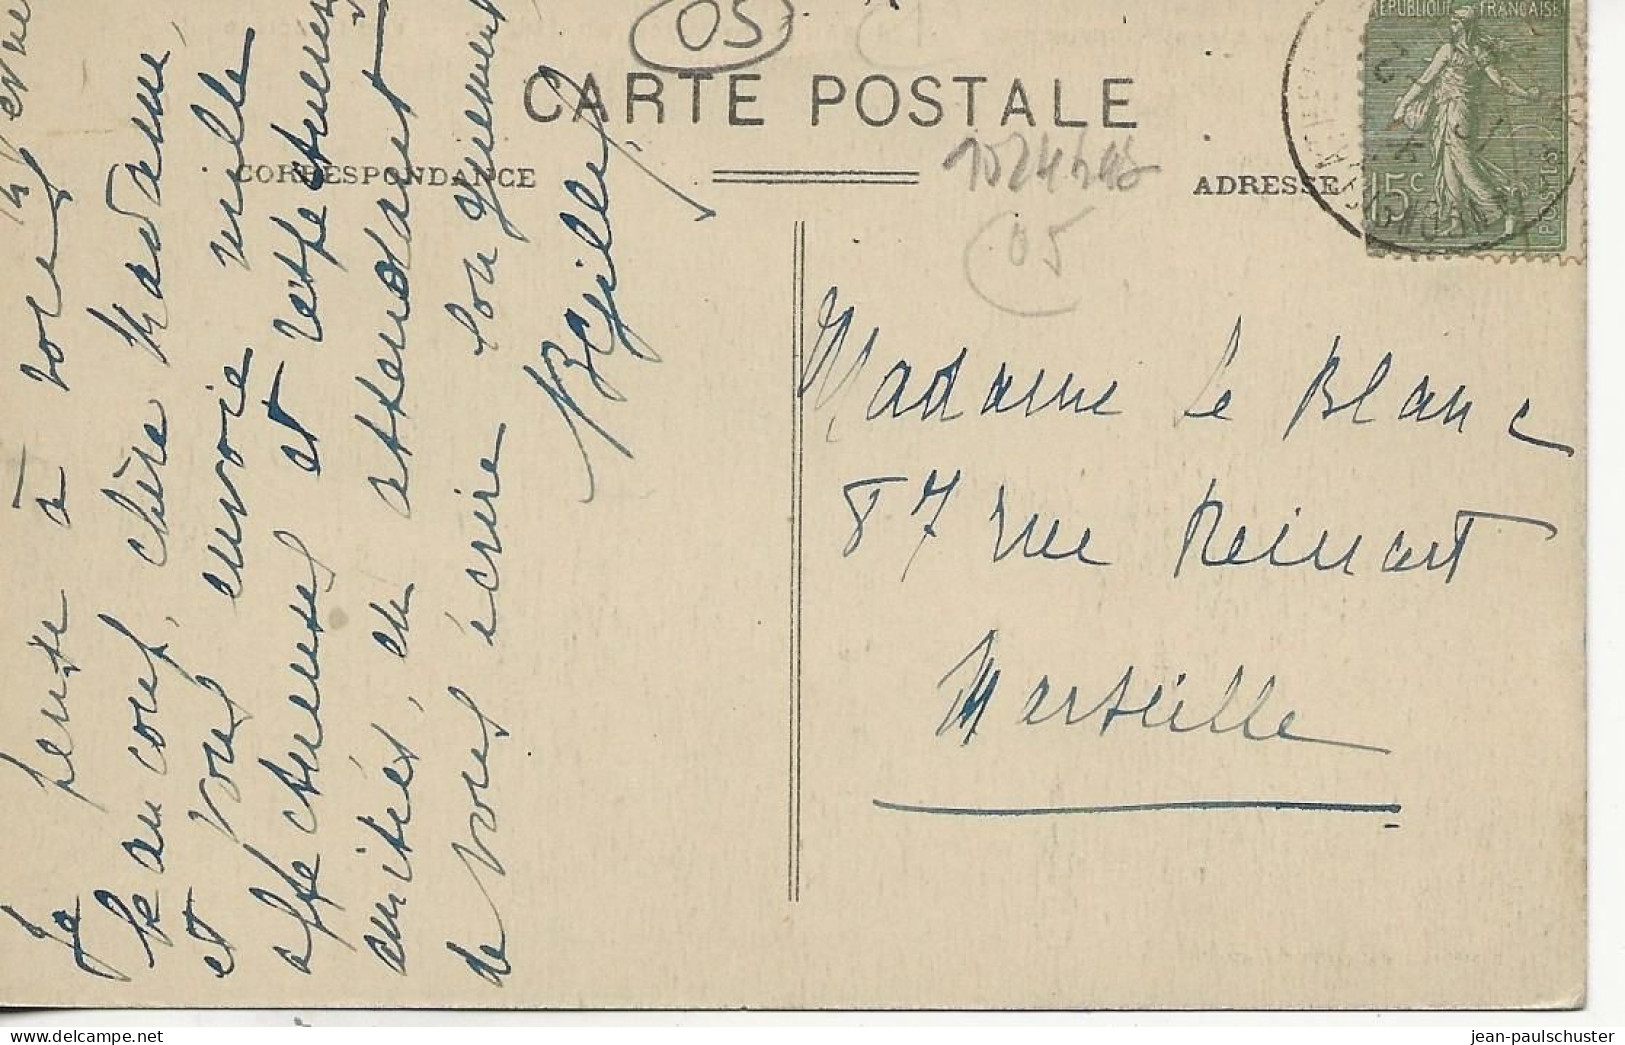 05
CARTE POSTALE
CORRESPONDANCE
ADRESSE
RÉPUBLIQUE FRANÇAISE
15c
POSTES
05
Je pense à vous
beaucoup, chère Madame,
et vous envoie mille
affectueuses et respectueuses
amitiés, en attendant
de vous écrire longuement
Madame Le Blanc
87 rue Reinart
Marseille
jean-paulschuster